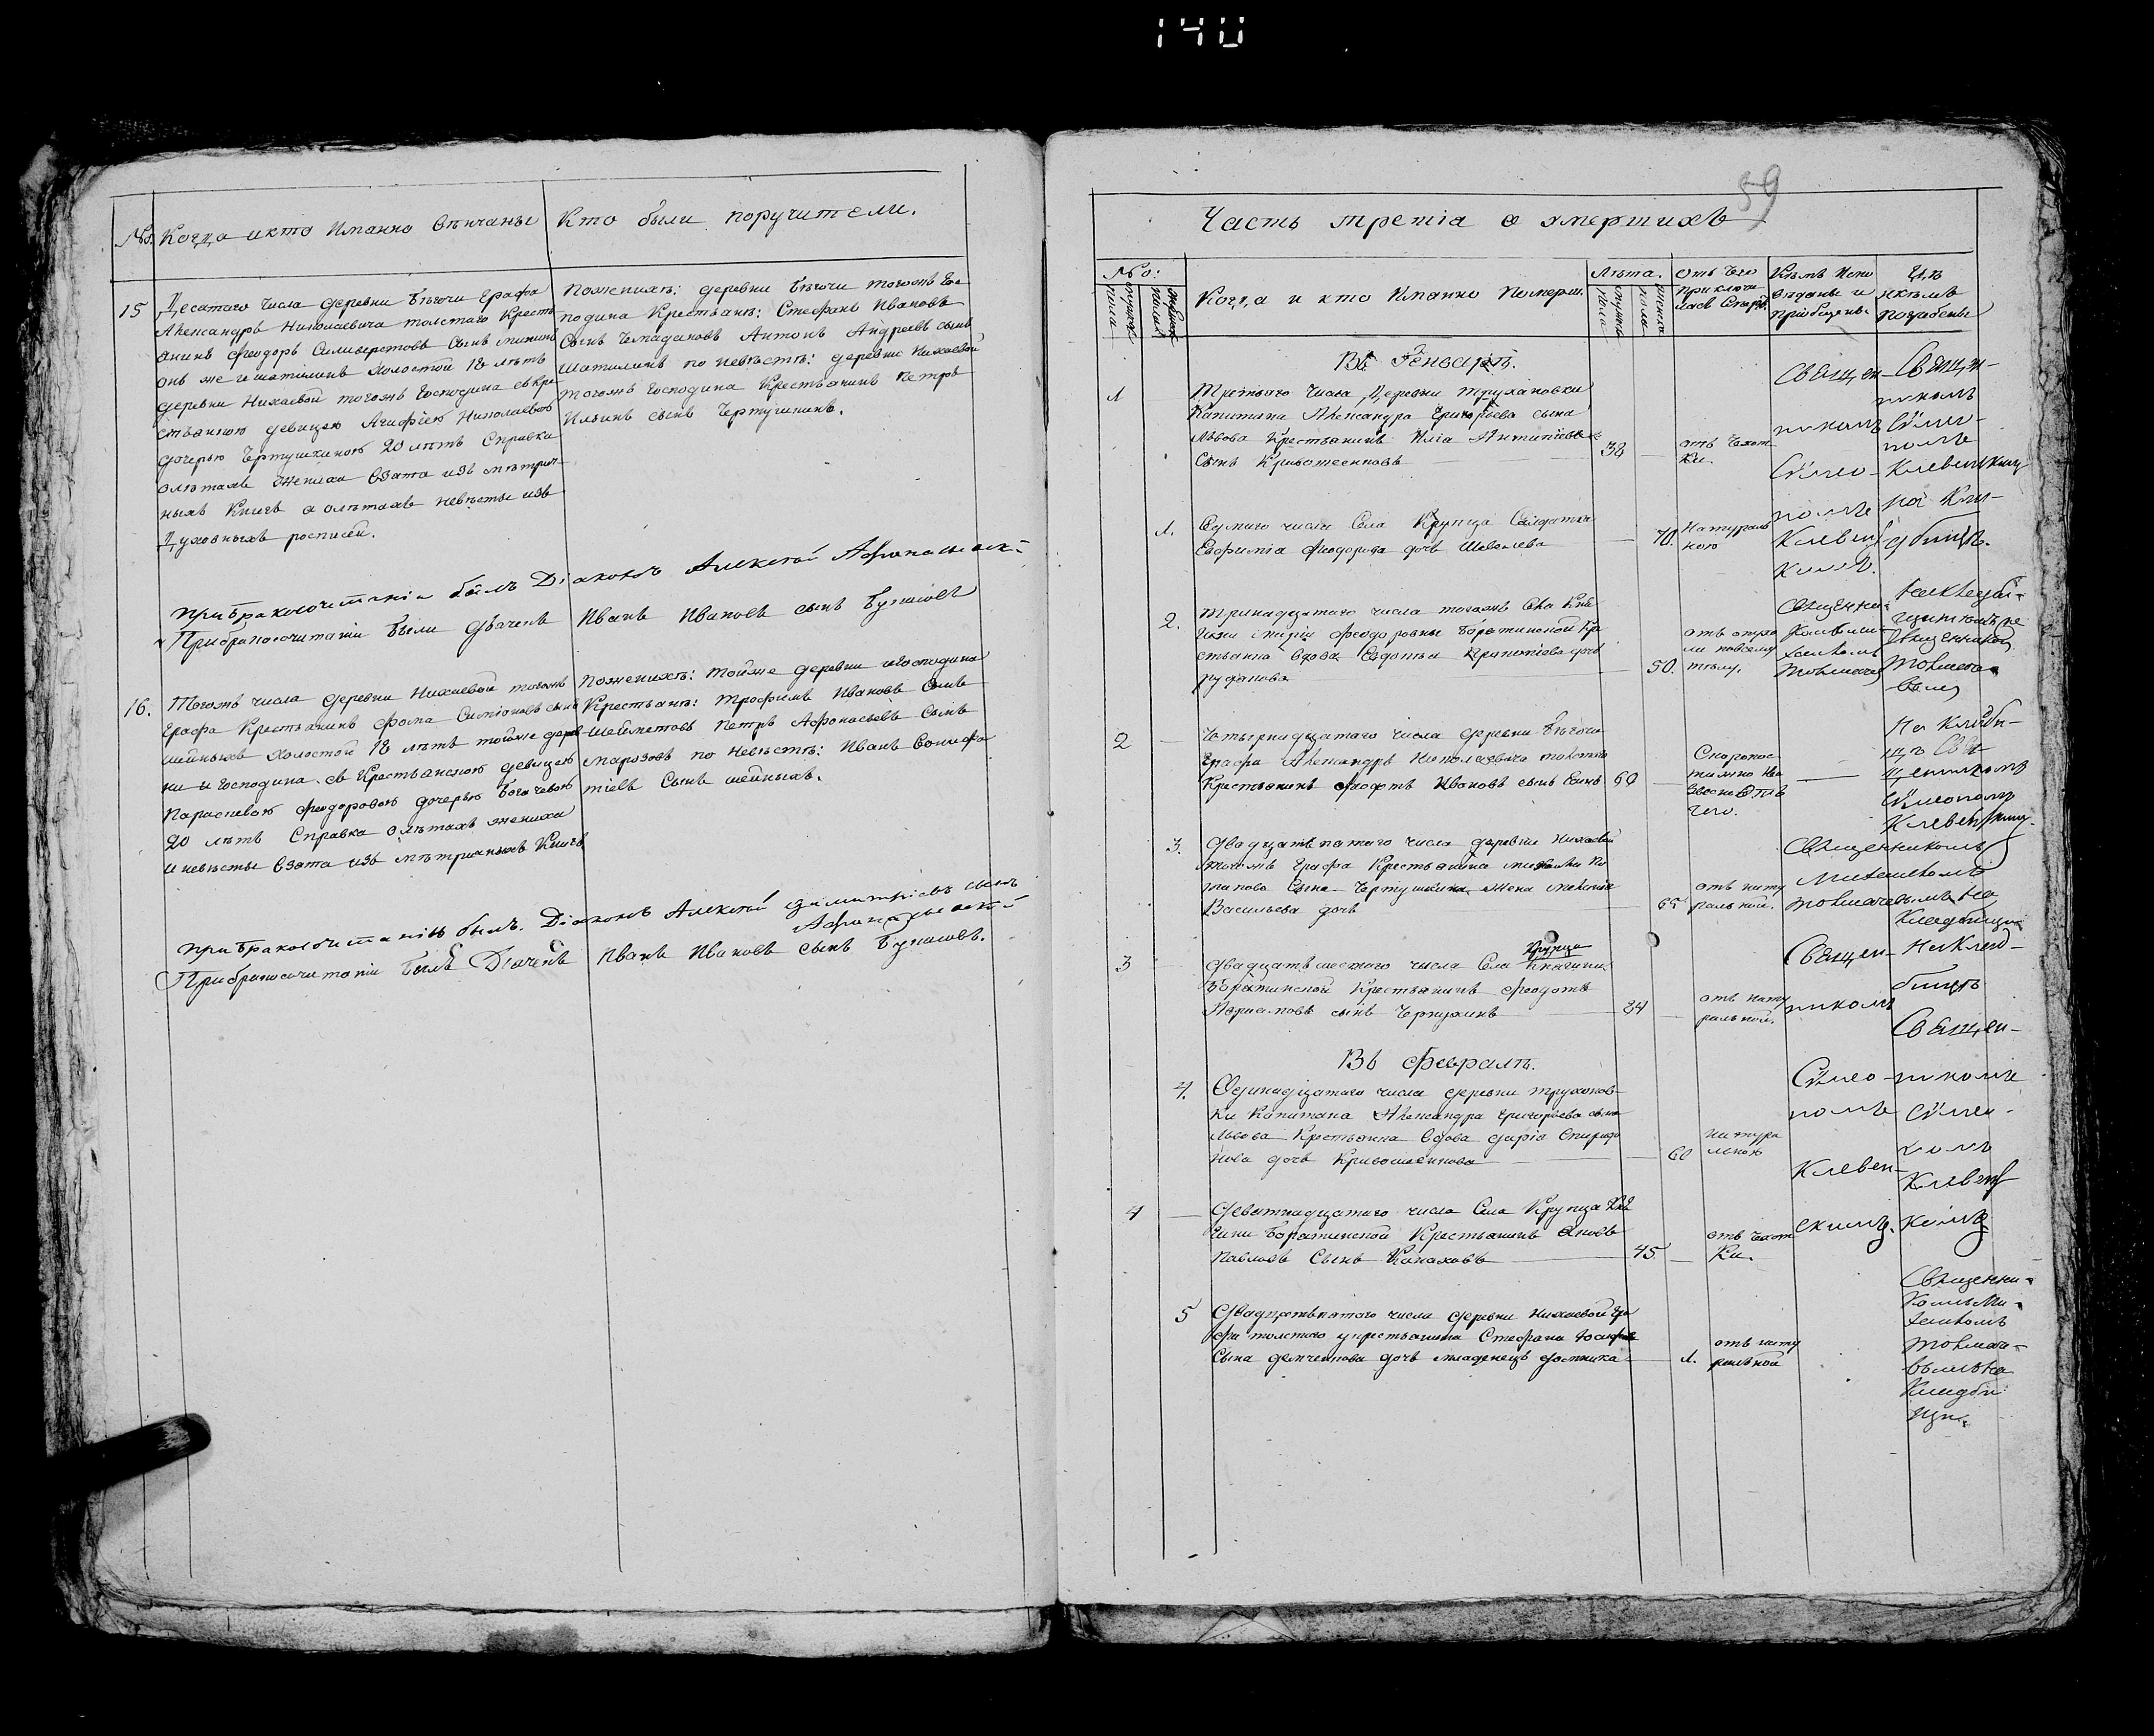 140
№. Когда и кто Имянно Венчаны
Кто были поручители.
15
Десятаго числа деревни Бегочи Графа
Александръ Николаевича толстаго Кресть
анинъ Феодоръ Силиверстовъ Сынъ
онъ же и шатилинъ холостой 18 летъ
деревни Нихаевой тогожъ Господина съ кре
стьянкою девицею Агафiею Николаевою
дочерью Чертушкиною 20 летъ Справка
олетахъ жениха взята изъ метрич-
ныхъ Книгъ а олетахъ невесты изъ
Духовныхъ росписей.
Поженихе: деревни Бегочи тогожъ Го-
сподина Крестьянъ: Стефанъ Ивановъ
Сынъ Чемадановъ Антонъ Андреевъ сынъ
Шатилинъ по невесте: деревни Нихаевой
тогожъ Господина Крестьянинъ Петръ
Ильинъ сынъ Чертушкинъ.
при Бракосочитанiи былъ Дiаконъ Алексей Афонасьевск:
Прибракосочитании были Дьячекъ Иванъ Ивановъ сынъ Бупаловъ
16.
Тогожъ числа деревни Нихаевой тогожъ
Графа Крестьянинъ Фома Симiоновъ сынъ
шейныхъ холостой 18 летъ тойже дерев
ни и Господина съ Крестьянскою девицею
Параскевою Феодоровою дочерью Богачевою
20 летъ Справка олетахъ жениха
и невесты взята изъ метричныхъ Книгъ
поженихе: тойже деревни и Господина
Крестьянъ: Трофимъ Ивановъ Сынъ
Шейметовъ Петръ Афонасьевъ Сынъ
марозовъ по Невесте: Иванъ Вонифа
тiевъ Сынъ шейныхъ.
при Бракосочитанiи былъ. Дiаконъ Алексей Димитрiевъ сынъ
Афонасьевской
Прибракосочитанiи былъ Дiачекъ Иванъ Ивановъ сынъ Бупаловъ.
59
Часть третiа о умершихъ
№о:
мужеска пола
женска пола
Когда и кто Имянно Померли.
Лета.
мужеска пола
женска пола
Отъ Чего приключи лась Смерть
Кемъ Испо веданы и прiобщены
Где и кемъ погребены
Въ Генваре.
1
Третьяго числа Деревни Трухановки
Капитана Александра Григорьева сына
Львова Крестьянинъ Илiа Антипiевъ
Сынъ Кривошеиновъ
38
отъ Чахот
ки.
Священ-
никомъ
Сѵмео-
номъ
Клевен
кимъ.
Священ-
никомъ
Сѵмео-
номъ
Клевенскимъ
на Кла-
дбище.
1.
Седмаго числа Села Крупца Салдатка
Евфимiа Феодорова дочь Шевелева
70.
Натураль
ною
2.
Тринадцатаго числа тогожъ Села Кня
гини Марiи Феодоровны Боратинской Кре
стьянка вдова Евдотья
руфанова
50.
отъ опухо
ли повсему
телу.
Священни-
комъ Ми-
хаиломъ
Толмаче
на Кладби-
щи темъже
Священникомъ
Толмаче-
вымъ
2
Четырнадцатаго числа деревни Бегочи
Графа Александръ Николаевича толстаго
Крестьянинъ Феофанъ Ивановъ сынъ
60
Скоропос
тижно Не
звесно Отъ
чего.
На Кладби-
ще Свя
щенникомъ
Сѵмеономъ
Клевенскимъ.
3.
Двадцатьпятаго числа деревни Нихаевой
тогожъ Графа Крестьянина михайлы По
тапова Сына Чертушкина Жена
Васильева дочь
65
отъ нату
ральной.
Священникомъ
Михаиломъ
Толмачевымъ на
Кладбище
3
Двадцать шестаго числа Села Крупца Княгини
Боратинской Крестьянинъ Феодотъ
сынъ Чернухинъ
84
отъ нату
ральной.
Священ-
никомъ
Сѵмео-
номъ
Клевен-
скимъ.
На Клад-
бище
Священ-
никомъ
Сѵмео-
номъ
Клевенс
кимъ
Въ Феврале.
4.
Одинадцатаго числа деревни Труханов-
ки Капитана Александра Григорьева сына
Львова Крестьянка Вдова Дарiа Спиридо
нова дочь Кривошеинова
60
натура
льною
4
Деветнадцатаго числа Села Крупца Кня
гини Боратинской Крестьянинъ Яковъ
Павловъ Сынъ Канаховъ
45
отъ Чахот
ки.
5
Двадцатьпятаго числа деревни Нихаевой Гра
фа толстаго у крестьянина Стефана
Сына Демченкова дочь младенецъ Домника
1.
отъ нату
ральной
Священни-
комъ Ми-
хаиломъ
Толмаче-
вымъ на
Кладби
щи.